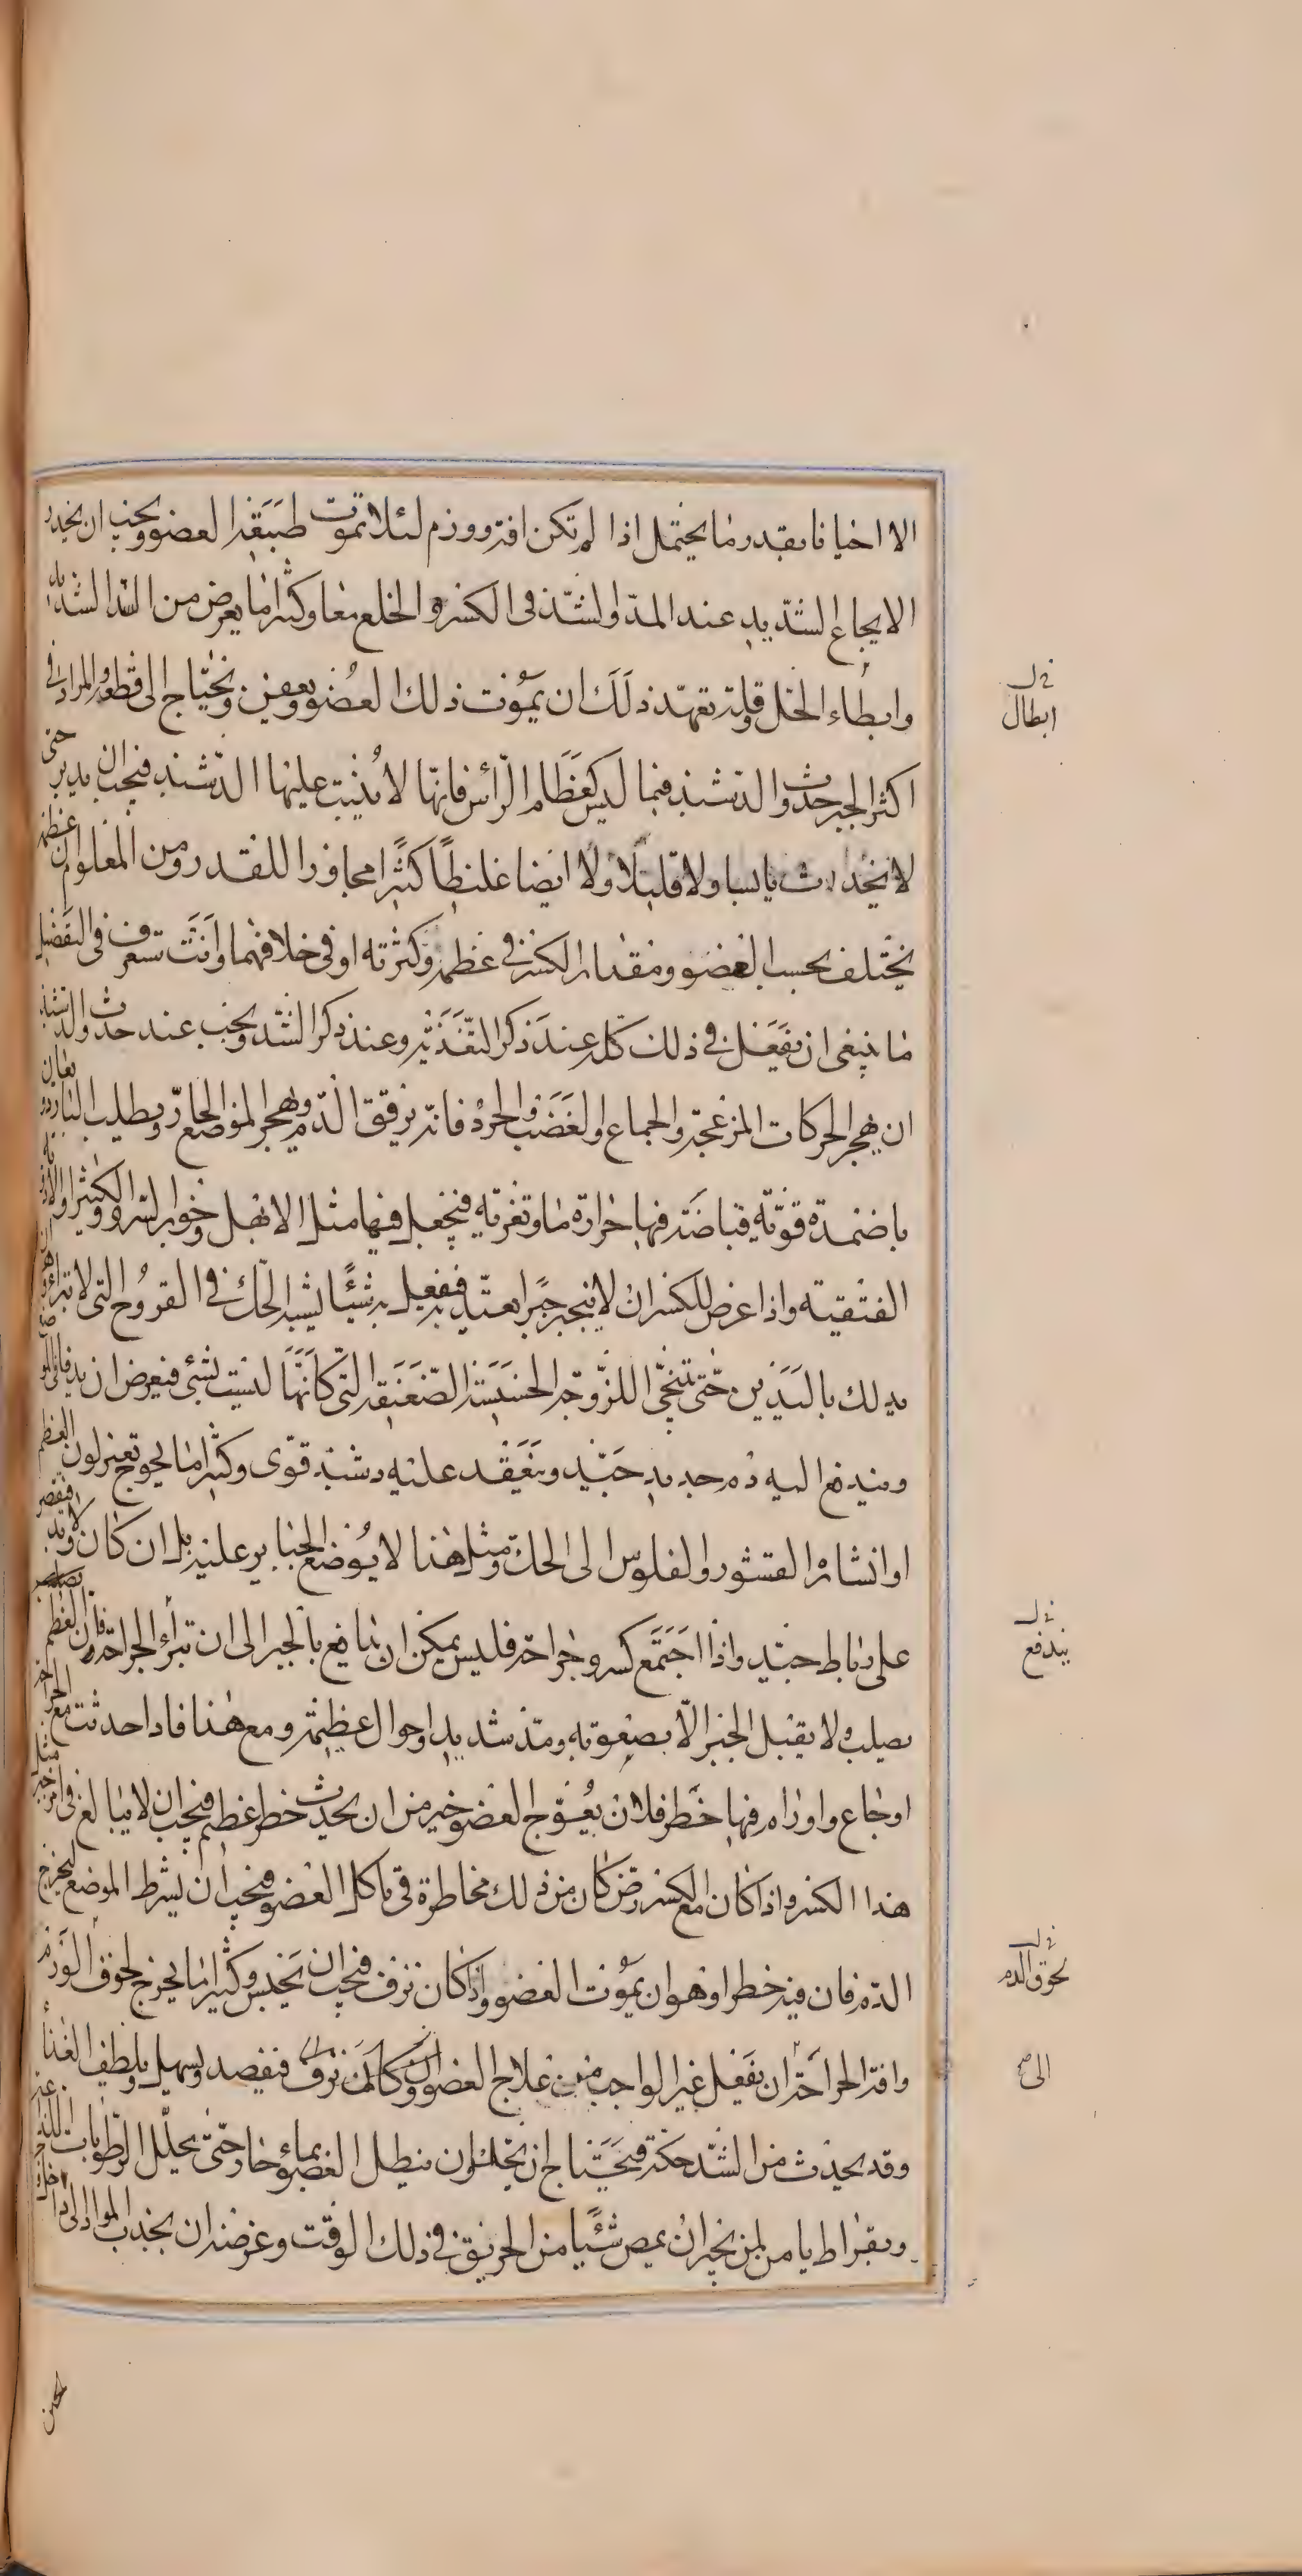 الا احيانا بقدر ما يحتمل اذا لم تكن افة وورم لئلا تموت طبيعة العضو ويجب ان يحذر
الايجاع الشديد عند المد والشد فى الكسر والخلع معا وكثيرا ما يعرض من الشد الشديد
وابطاء الحل وقلة تعهد ذلك ان يموت ذلك العضو ويعفن ويحتاج الى قطعه والمراد فى
اكثر الجبر حدوث الدشبذ فيما ليس كعظام الرأس فانها لا ينبت عليها الدشبذ فيجب ان يدبر حتى
لا يحدث يابسا ولا قليلا ولا ايضا غليظا كثيرا مجاوزا للقدر ومن المعلوم ان عظمه
يختلف بحسب العضو ومقدار الكسر فى عظمه وكثرته او فى خلافهما وانت تعرف فى التفصيل
ما ينبغى ان يفعل فى ذلك كله عند ذكر التغذية وعند ذكر الشد ويجب عند حدوث الدشبذ
ان يهجر الحركات المزعجة والجماع والغضب والحرد فانه يرقق الدم ويهجر المواضع الحارة ويطلب الباردة
باضمدة قوية قباضة فيها حرارة ما وتغرية فيجعل فيها مثل الابهل وجوز السرو والكثيرا
الفتقية واذا عرض للكسر ان لا ينجبر جبرا يعتد به فيفعل به شيئا يشبه الحك فى القروح التى لا تبرأ وهو ان
يدلك باليدين حتى تتنحى اللزوجة الخسيسة الضعيفة التى كانها ليست بشئ فيعرض ان
ويندفع اليه دم جديد جيد وينعقد عليه دشبذ قوى وكثيرا ما يحوج تغير لون العظم
او انتشاره القشور والفلوس الى الحك ومثل هذا لا يوضع الجباير عليه بل ان كان ولا بد فيقصر
على رباط جيد واذا اجتمع كسر وجراحة فليس يمكن ان يدافع بالجبر الى ان تبرأ الجراحة فان العظم
يصلب ولا يقبل الجبر الا بصعوبة ومد شديد واحوال عظيمة ومع هذا فاذا حدثت مع
اوجاع واورام فيها خطر فلان يعوج العضو خير من ان يحدث خطر عظيم فيجب ان لا يبالغ فى
هذا الكسر واذا كان مع الكسر رض كان من ذلك مخاطرة فى تاكل العضو فيجب ان يشرط الموضع ليخرج
الدم فان فيه خطرا وهو ان يموت العضو واذا كان نزف فيجب ان يحبس وكثيرا ما يخرج لخوف الورم
وافة الجراحة ان يفعل غير الواجب من علاج العضو وان كان نزف فيفصد ويسهل ويلطف الغذاء
وقد يحدث من الشد حكة فيحتاج ان يحل وان ينطل العضو بماء حار حتى يحلل الرطوبات اللذاعة
وبقراط يامر لمن يجبر ان يمص شيئا من الخربق فى ذلك الوقت وغرضه ان يجذب المواد الى داخل
ابطال
يندفع
لحوق الدم
الى